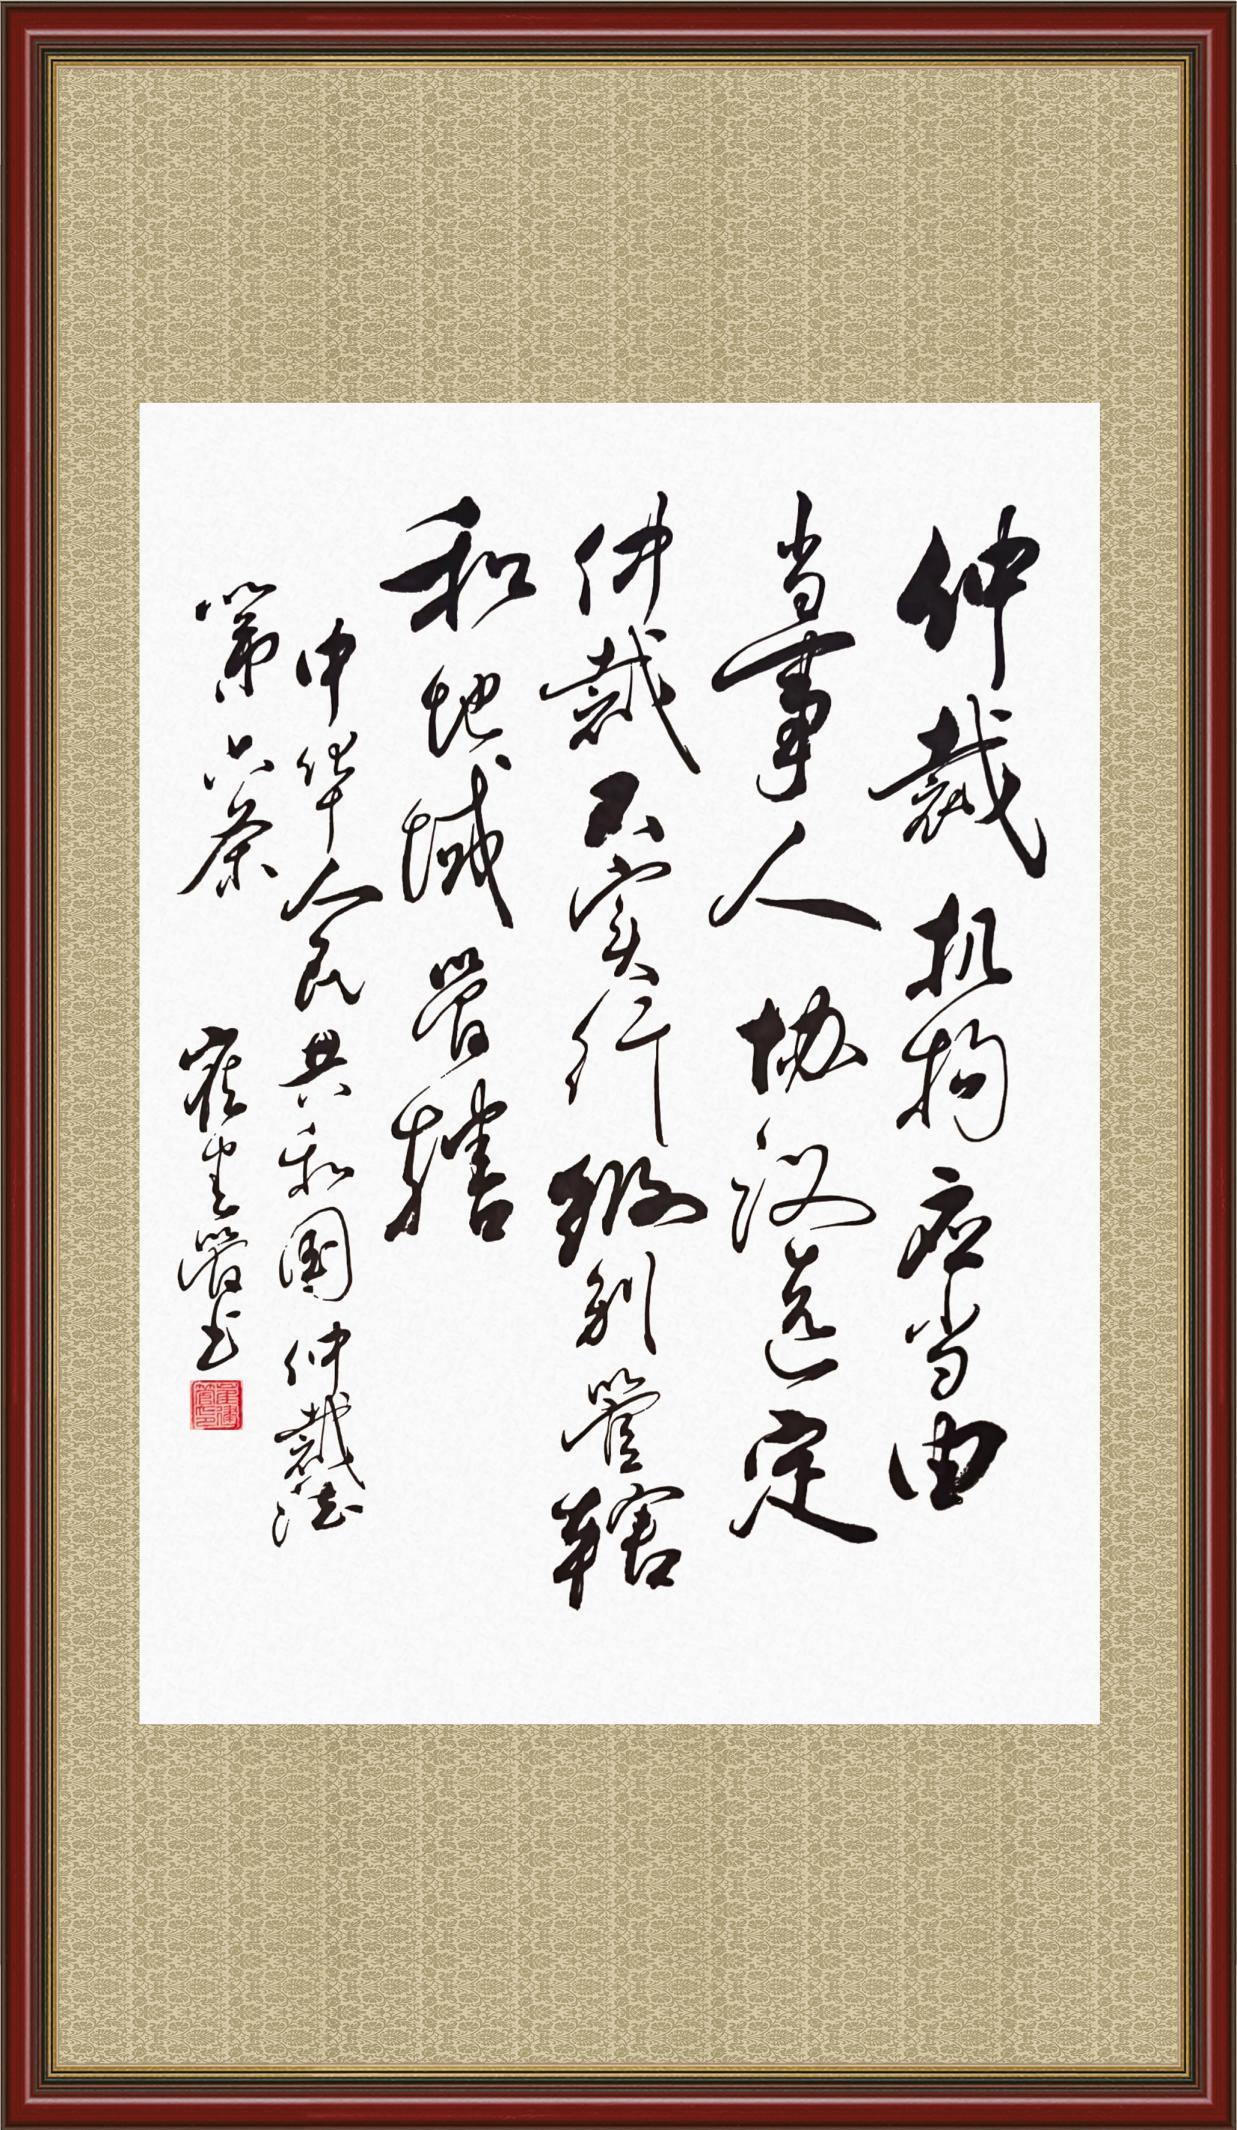 仲裁机构应当由
当事人协议选定
仲裁不实行级别管辖
和地域管辖
中华人民共和国仲裁法
第六条
崔生管书